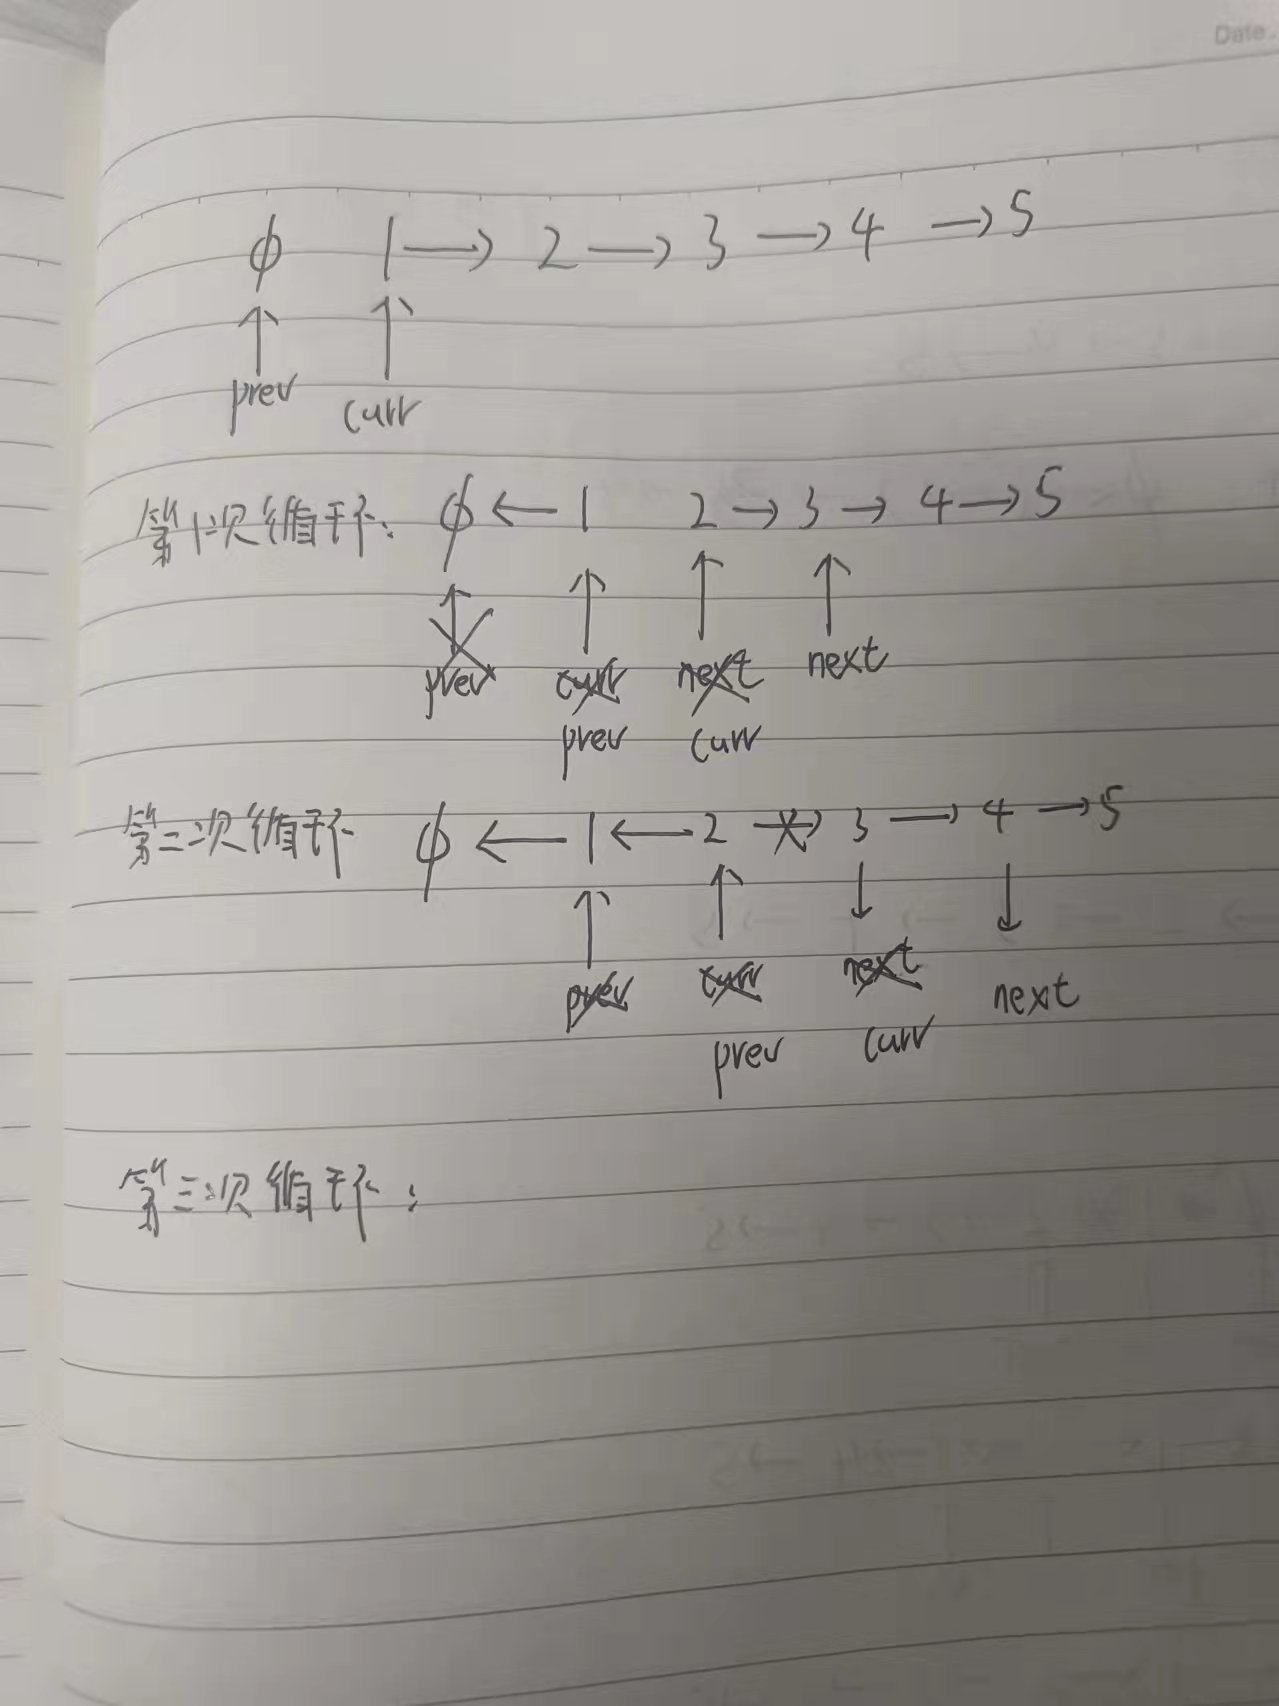 Date.
φ 1 → 2 → 3 → 4 → 5
prev curr
第1次循环: φ ← 1 2 → 3 → 4 → 5
prev curr next next
prev curr
第二次循环 φ ← 1 ← 2 → 3 → 4 → 5
prev curr next next
prev curr
第三次循环: